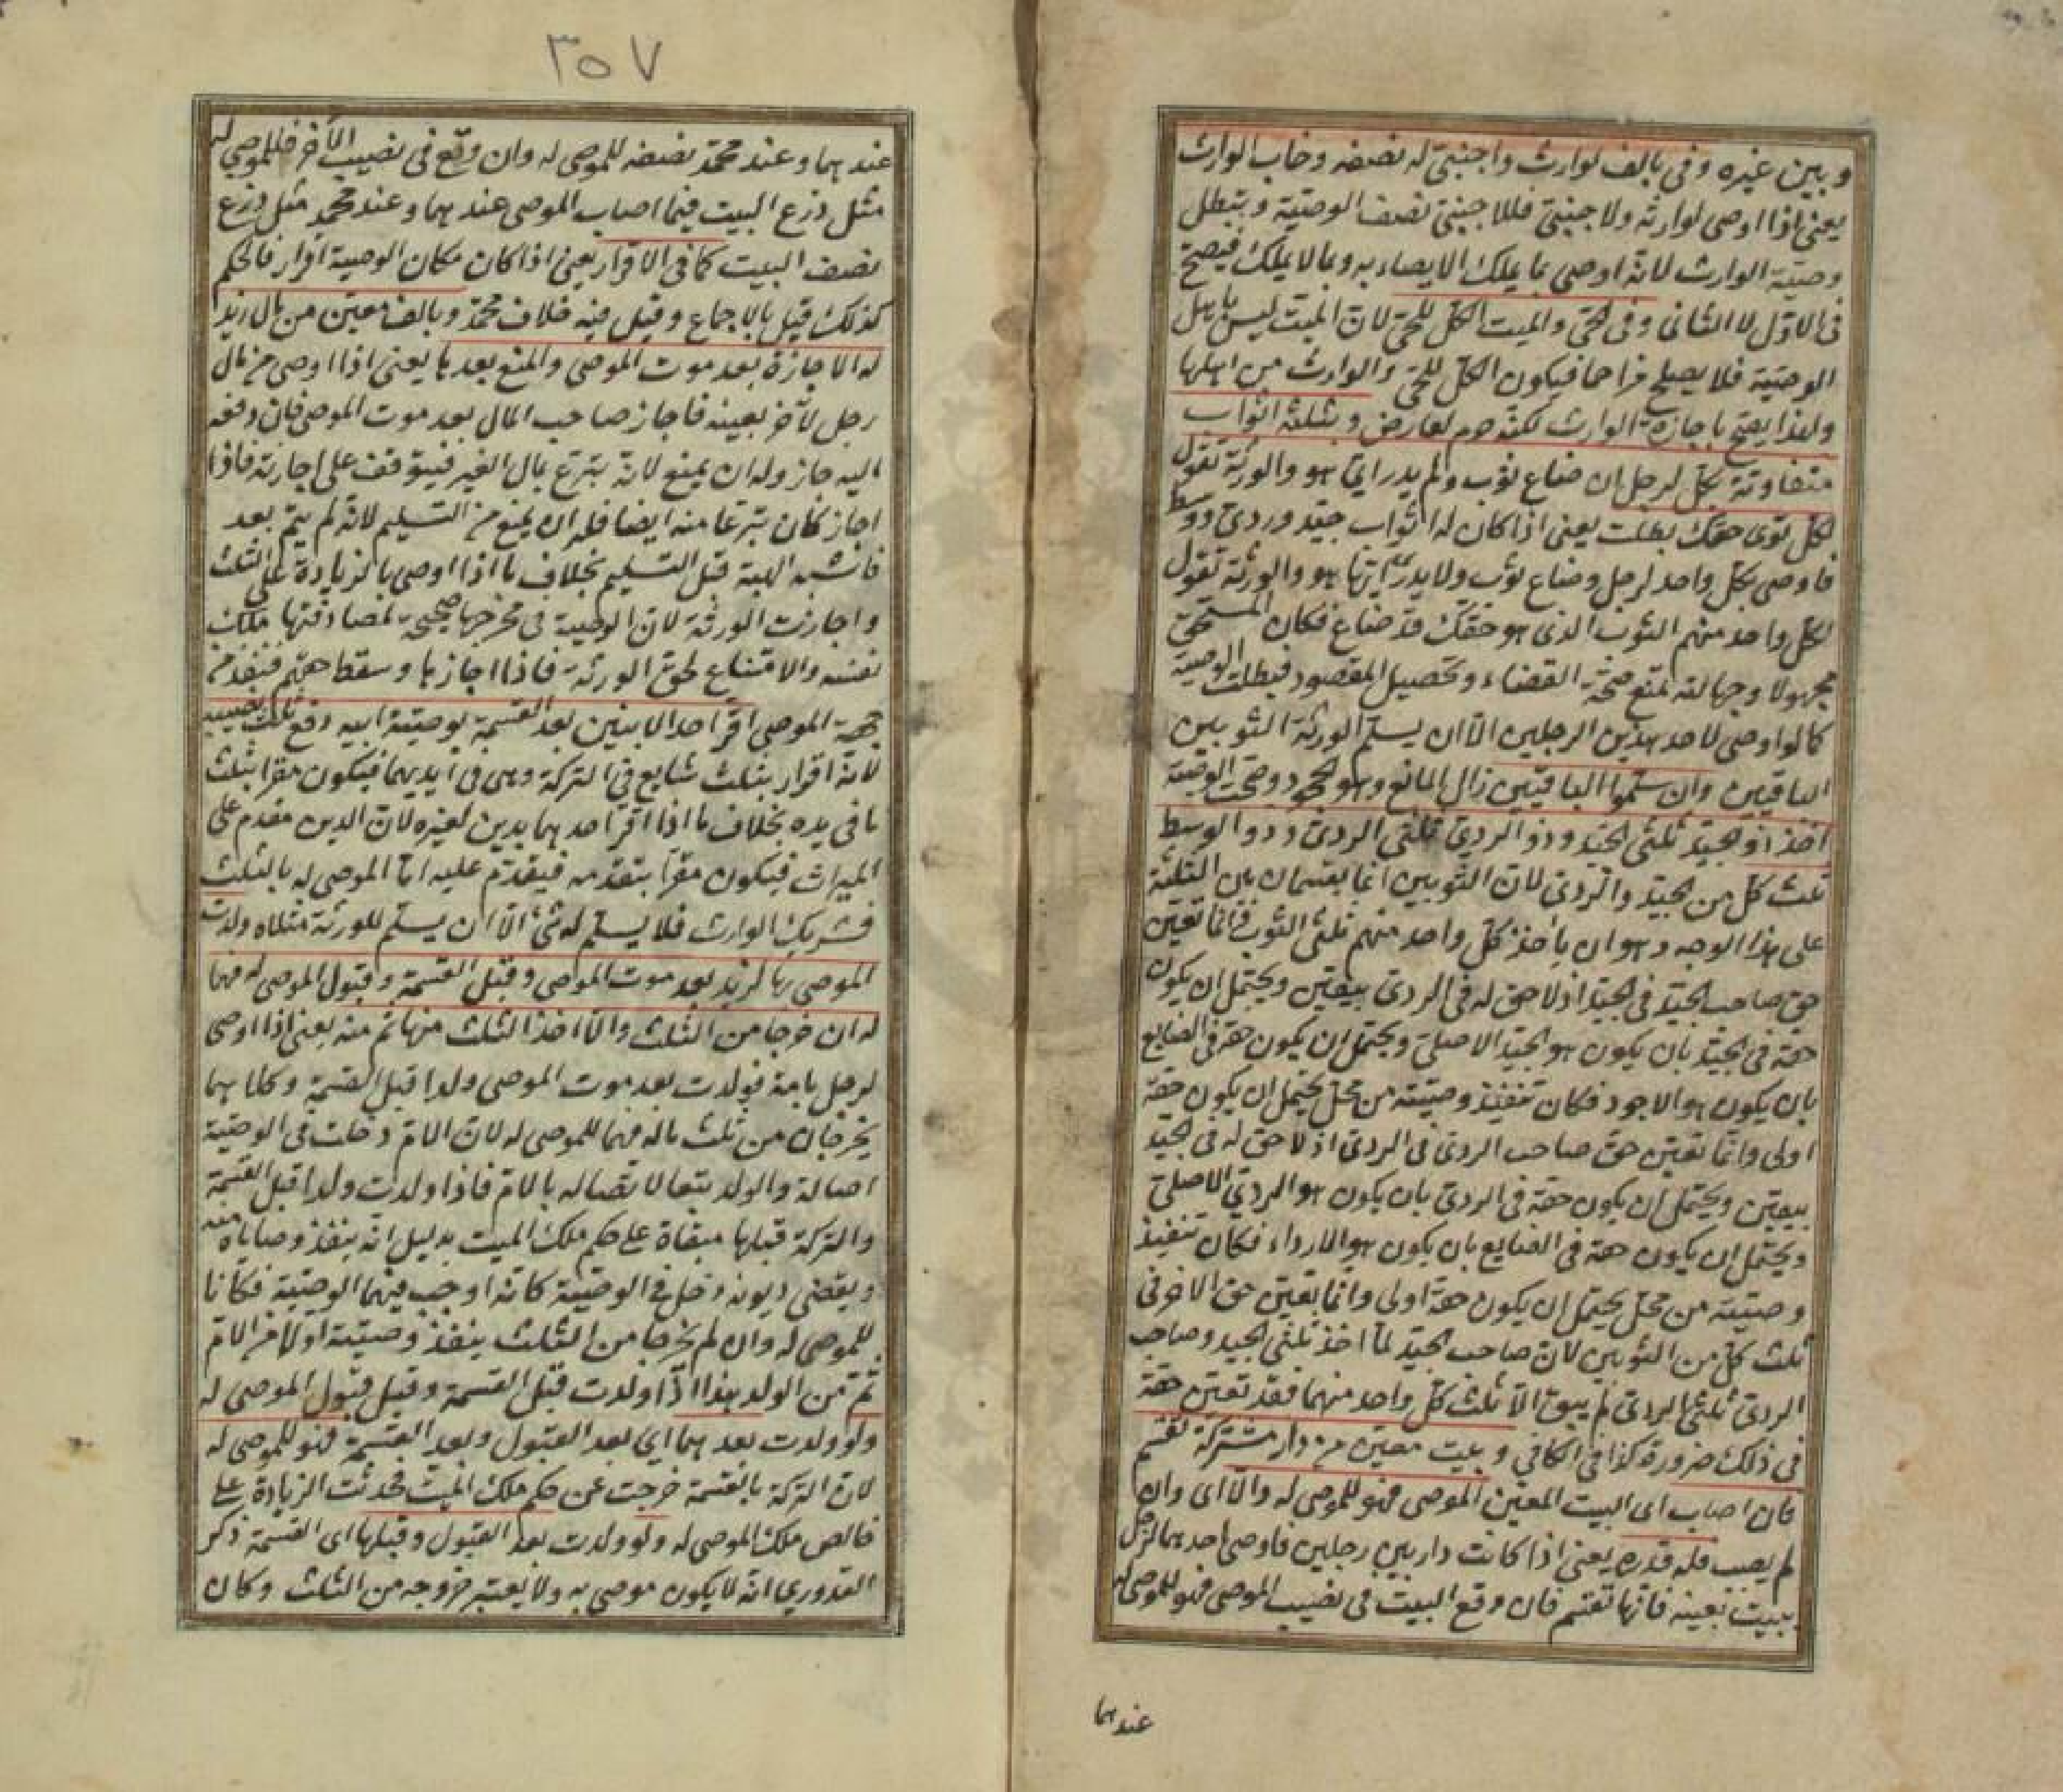 وبين غيره وفى بالف لوارث واجنبى له نصفه وخاب الوارث
يعنى اذا اوصى لوارثه ولاجنبى فللاجنبى نصف الوصية وتبطل
وصية الوارث لانه اوصى بما يملك الايصاء به وبما لا يملك فيصح
فى الاول لا الثانى وفى لحى والميت الكل للحى لان الميت ليس باهل
الوصية فلا يصلح مزاحما فيكون الكل للحى والوارث من اهلها
ولهذا يصح باجازة الوارث لكنه حرم لعارض وبثلثة اثواب
متفاوتة بكل لرجل ان ضاع ثوب ولم يدر اى هو والورثة تقول
لكل توى حقك بطلت يعنى اذا كان له اثواب جيد وردى ووسط
فاوصى بكل واحد لرجل وضاع ثوب ولا يدرى ايها هو والورثة تقول
لكل واحد منهم الثوب الذى هو حقك قد ضاع فكان المستحق
مجهولا وجهالته تمنع صحة القضاء وتحصيل المقصود فبطلت الوصية
كما لو اوصى لاحد هذين الرجلين الا ان يسلم الورثة الثوبين
الباقيين وان سلموا الباقيين زال المانع وهو الجحود وصحت الوصية
اخذ ذو لجيد ثلثى لجيد وذو الردى ثلثى الردى وذو الوسط
ثلث كل من لجيد والردى لان الثوبين انما يقسمان بين الثلثة
على هذا الوجه وهو ان ياخذ كل واحد منهم ثلثى الثوب فانما تعين
حق صاحب لجيد فى لجيد اذ لا حق له فى الردى بيقين ويحتمل ان يكون
حقه فى لجيد بان يكون هو لجيد الاصلى ويحتمل ان يكون حقه فى الضايع
بان يكون هو الاجود فكان تنفيذ وصيته من محل يحتمل ان يكون حقه
اولى وانما تعين حق صاحب الردى فى الردى اذ لا حق له فى لجيد
بيقين ويحتمل ان يكون حقه فى الردى بان يكون هو الردى الاصلى
ويحتمل ان يكون حقه فى الضايع بان يكون هو الارداء فكان تنفيذ
وصيته من محل يحتمل ان يكون حقه اولى وانما يعين حق الاخر فى
ثلث كل من الثوبين لان صاحب لجيد لما اخذ ثلثى لجيد وصاحب
الردى ثلثى الردى لم يبق الا ثلث كل واحد منهما فقد تعين حقه
فى ذلك ضرورة كذا فى الكافى وببيت معين من دار مشتركة تقسم
فان اصاب اى البيت المعين الموصى فهو للموصى له والا اى وان
لم يصب فله قدره يعنى اذا كانت دار بين رجلين فاوصى احدهما لرجل
ببيت بعينه فانها تقسم فان وقع البيت فى نصيب الموصى فهو للموصى له
عندهما
٣٥٧
عندهما وعند محمد نصفه للموصى له وان وقع فى نصيب الآخر فللموصى له
مثل ذرع البيت فيما اصاب الموصى عندهما وعند محمد مثل ذرع
نصف البيت كما فى الاقرار يعنى اذا كان مكان الوصية اقرار فالحكم
كذلك قيل بالاجماع وقيل فيه خلاف محمد وبالف معين من مال زيد
له الاجازة بعد موت الموصى والمنع بعدها يعنى اذا اوصى من مال
رجل لآخر بعينه فاجاز صاحب المال بعد موت الموصى فان دفعه
اليه جاز وله ان يمنع لانه تبرع بمال الغير فيتوقف على اجازته فاذا
اجاز كان تبرعا منه ايضا فله ان يمنع من التسليم لانه لم يتم بعد
فاشبه الهبة قبل التسليم بخلاف ما اذا اوصى بالزيادة على الثلث
واجازت الورثة لان الوصية فى مخرجها صحيحة لمصادفتها ملك
نفسه والامتناع لحق الورثة فاذا اجازها وسقط حقهم فنفذ من
جهة الموصى اقر احد الابنين بعد القسمة بوصية ابيه دفع ثلث نصيبه
لانه اقرار بثلث شايع فى التركة وهى فى ايديهما فيكون مقرا بثلث
ما فى يده بخلاف ما اذا اقر احدهما بدين لغيره لان الدين مقدم على
الميراث فيكون مقرا بتقدمه فيقدم عليه اما الموصى له بالثلث
فشريك الوارث فلا يسلم له شئ الا ان يسلم للورثة مثلاه ولدت
الموصى بها لزيد بعد موت الموصى وقبل القسمة وقبول الموصى له فهما
له ان خرجا من الثلث والا اخذ الثلث منها ثم منه يعنى اذا اوصى
لرجل بامة فولدت بعد موت الموصى ولدا قبل القسمة وكلاهما
يخرجان من ثلث ماله فهما للموصى له لان الام دخلت فى الوصية
اصالة والولد تبعا لاتصاله بالام فاذا ولدت ولدا قبل القسمة
والتركة قبلها مبقاة على حكم ملك الميت بدليل انه ينفذ وصاياه منه
ويقضى ديونه دخل فى الوصية كانه اوجب فيهما الوصية فكانا
للموصى له وان لم يخرجا من الثلث ينفذ وصيته اولا من الام
ثم من الولد هذا اذا ولدت قبل القسمة وقبل قبول الموصى له
ولو ولدت بعدهما اى بعد القبول وبعد القسمة فهو للموصى له
لان التركة بالقسمة خرجت عن حكم ملك الميت فحدثت الزيادة على
خالص ملك الموصى له ولو ولدت بعد القبول وقبلها اى القسمة ذكر
القدورى انه لا يكون موصى به ولا يعتبر خروجه من الثلث وكان